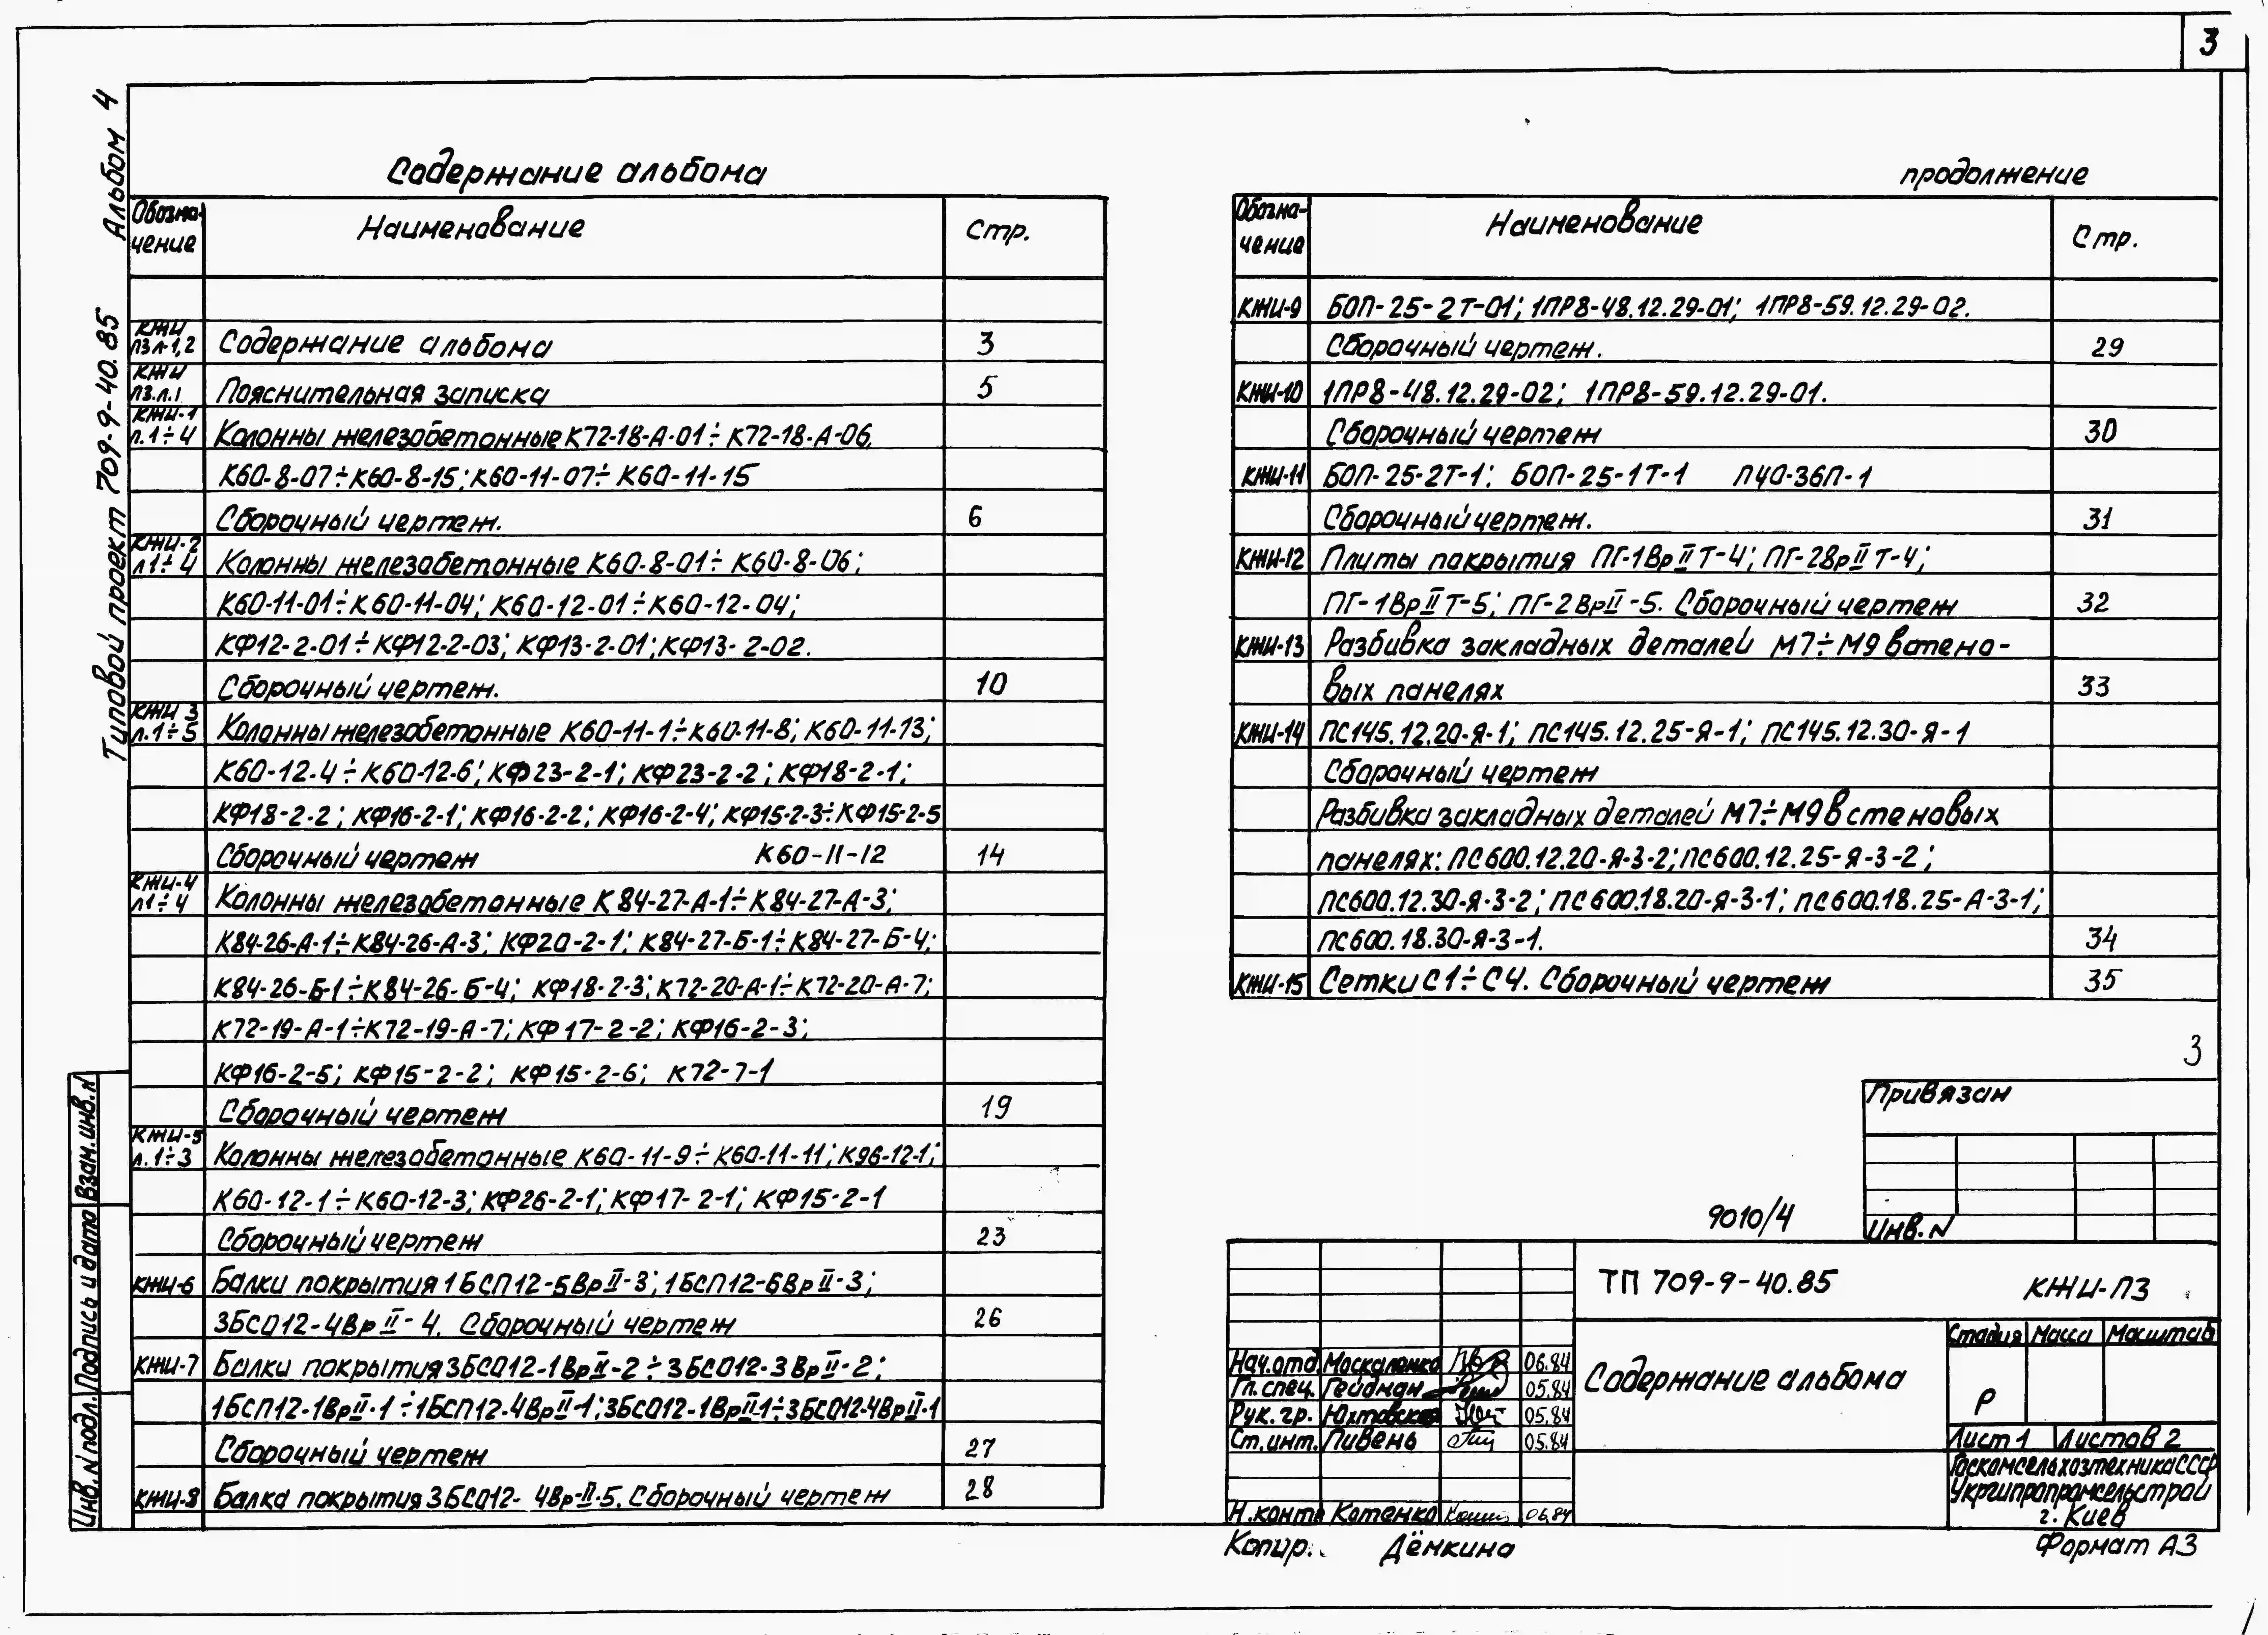 3
Типовой проект 709-9-40.85 Альбом 4
Содержание альбома
Обозна-
чение
Наименование
Стр.
КЖИ
ПЗ л-1,2 Содержание альбома 3
КЖИ
ПЗ.л.1 Пояснительная записка 5
КЖИ-1
л.1÷4 Колонны железобетонные К72-18-А-01÷К72-18-А-06,
К60-8-07÷К60-8-15; К60-11-07÷К60-11-15
Сборочный чертеж. 6
КЖИ-2
л1÷4 Колонны железобетонные К60-8-01÷К60-8-06;
К60-11-01÷К60-11-04; К60-12-01÷К60-12-04;
КФ12-2-01÷КФ12-2-03; КФ13-2-01; КФ13-2-02.
Сборочный чертеж. 10
КЖИ 3
л.1÷5 Колонны железобетонные К60-11-1÷К60-11-8; К60-11-13;
К60-12-4÷К60-12-6; КФ23-2-1; КФ23-2-2; КФ18-2-1;
КФ18-2-2; КФ16-2-1; КФ16-2-2; КФ16-2-4; КФ15-2-3÷КФ15-2-5
Сборочный чертеж К60-11-12 14
КЖИ-4
л1÷4 Колонны железобетонные К84-27-А-1÷К84-27-А-3;
К84-26-А-1÷К84-26-А-3; КФ20-2-1; К84-27-Б-1÷К84-27-Б-4;
К84-26-Б-1÷К84-26-Б-4; КФ18-2-3; К72-20-А-1÷К72-20-А-7;
К72-19-А-1÷К72-19-А-7; КФ17-2-2; КФ16-2-3;
КФ16-2-5; КФ15-2-2; КФ15-2-6; К72-7-1
Сборочный чертеж 19
КЖИ-5
л.1÷3 Колонны железобетонные К60-11-9÷К60-11-11; К96-12-1;
К60-12-1÷К60-12-3; КФ26-2-1; КФ17-2-1; КФ15-2-1
Сборочный чертеж 23
КЖИ-6 Балки покрытия 1БСП12-5ВрII-3; 1БСП12-6ВрII-3;
3БСО12-4ВрII-4. Сборочный чертеж 26
КЖИ-7 Балки покрытия 3БСО12-1ВрII-2÷3БСО12-3ВрII-2;
1БСП12-1ВрII-1÷1БСП12-4ВрII-1; 3БСО12-1ВрII-1÷3БСО12-4ВрII-1
Сборочный чертеж 27
КЖИ-8 Балка покрытия 3БСО12-4Вр-II-5. Сборочный чертеж 28
продолжение
Обозна-
чение
Наименование
Стр.
КЖИ-9 БОП-25-2Т-01; 1ПР8-48.12.29-01; 1ПР8-59.12.29-02.
Сборочный чертеж. 29
КЖИ-10 1ПР8-48.12.29-02; 1ПР8-59.12.29-01.
Сборочный чертеж 30
КЖИ-11 БОП-25-2Т-1; БОП-25-1Т-1 П40-36П-1
Сборочный чертеж. 31
КЖИ-12 Плиты покрытия ПГ-1ВрIIТ-4; ПГ-2ВрIIТ-4;
ПГ-1ВрIIТ-5; ПГ-2ВрII-5. Сборочный чертеж 32
КЖИ-13 Разбивка закладных деталей М7÷М9 встено-
вых панелях 33
КЖИ-14 ПС145.12.20-Я-1; ПС145.12.25-Я-1; ПС145.12.30-Я-1
Сборочный чертеж
Разбивка закладных деталей М7÷М9 в стеновых
панелях: ПС600.12.20-Я-3-2; ПС600.12.25-Я-3-2;
ПС600.12.30-Я-3-2; ПС600.18.20-Я-3-1; ПС600.18.25-А-3-1;
ПС600.18.30-Я-3-1. 34
КЖИ-15 Сетки С1÷С4. Сборочный чертеж 35
3
Привязан
Инв.N
9010/4
ТП 709-9-40.85 КЖИ-ПЗ
Содержание альбома
Стадия Масса Масштаб
Р
Лист 1 Листов 2
Госкомсельхозтехника СССР
Укргипропромсельстрой
г. Киев
Нач.отд Москаленко 06.84
Гл.спец. Гейдман 05.84
Рук.гр. Юхтовская 05.84
Ст.инт. Пивень 05.84
Н.контр Котенко 06.84
Копир. Дёмкина
Формат А3
Инв.N подл. Подпись и дата Взам.инв.N